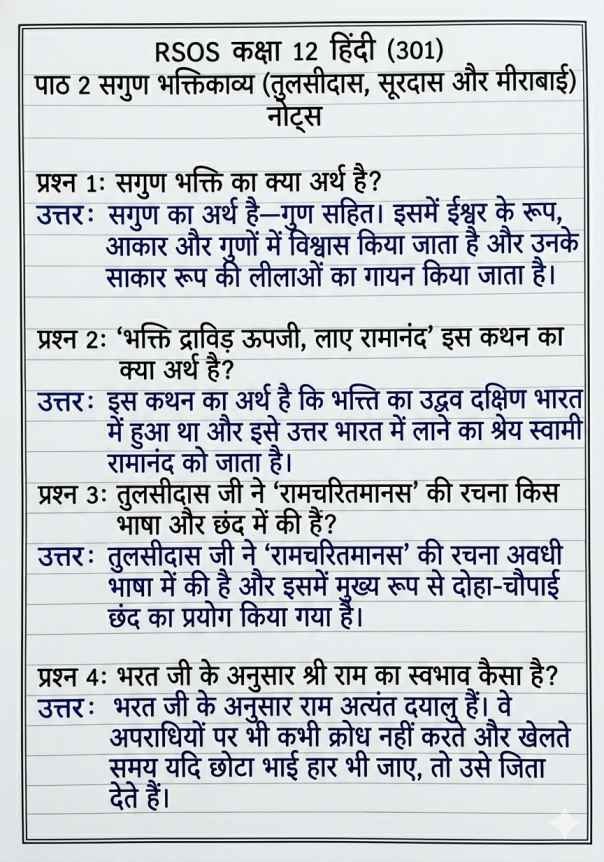 RSOS कक्षा 12 हिंदी (301)
पाठ 2 सगुण भक्तिकाव्य (तुलसीदास, सूरदास और मीराबाई)
नोट्स
प्रश्न 1: सगुण भक्ति का क्या अर्थ है?
उत्तर: सगुण का अर्थ है—गुण सहित। इसमें ईश्वर के रूप,
आकार और गुणों में विश्वास किया जाता है और उनके
साकार रूप की लीलाओं का गायन किया जाता है।
प्रश्न 2: ‘भक्ति द्राविड़ ऊपजी, लाए रामानंद’ इस कथन का
क्या अर्थ है?
उत्तर: इस कथन का अर्थ है कि भत्ति का उद्भव दक्षिण भारत
में हुआ था और इसे उत्तर भारत में लाने का श्रेय स्वामी
रामानंद को जाता है।
प्रश्न 3: तुलसीदास जी ने ‘रामचरितमानस’ की रचना किस
भाषा और छंद में की हैं?
उत्तर: तुलसीदास जी ने ‘रामचरितमानस’ की रचना अवधी
भाषा में की है और इसमें मुख्य रूप से दोहा-चौपाई
छंद का प्रयोग किया गया है।
प्रश्न 4: भरत जी के अनुसार श्री राम का स्वभाव कैसा है?
उत्तर: भरत जी के अनुसार राम अत्यंत दयालु हैं। वे
अपराधियों पर भी कभी क्रोध नहीं करते और खेलते
समय यदि छोटा भाई हार भी जाए, तो उसे जिता
देते हैं।